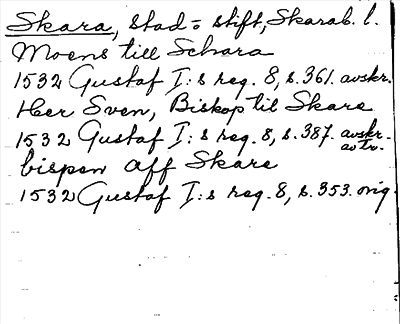 Skara, stad = stift, Skarab. l.
Moens till Schara
1532 Gustaf I:s reg. 8, s. 361. avskr.
Her Sven, Biskop til Skare
1532 Gustaf I:s reg. 8, s. 387. avskr. av tr.
bispen aff Skare
1532 Gustaf I:s reg. 8, s. 353. orig.